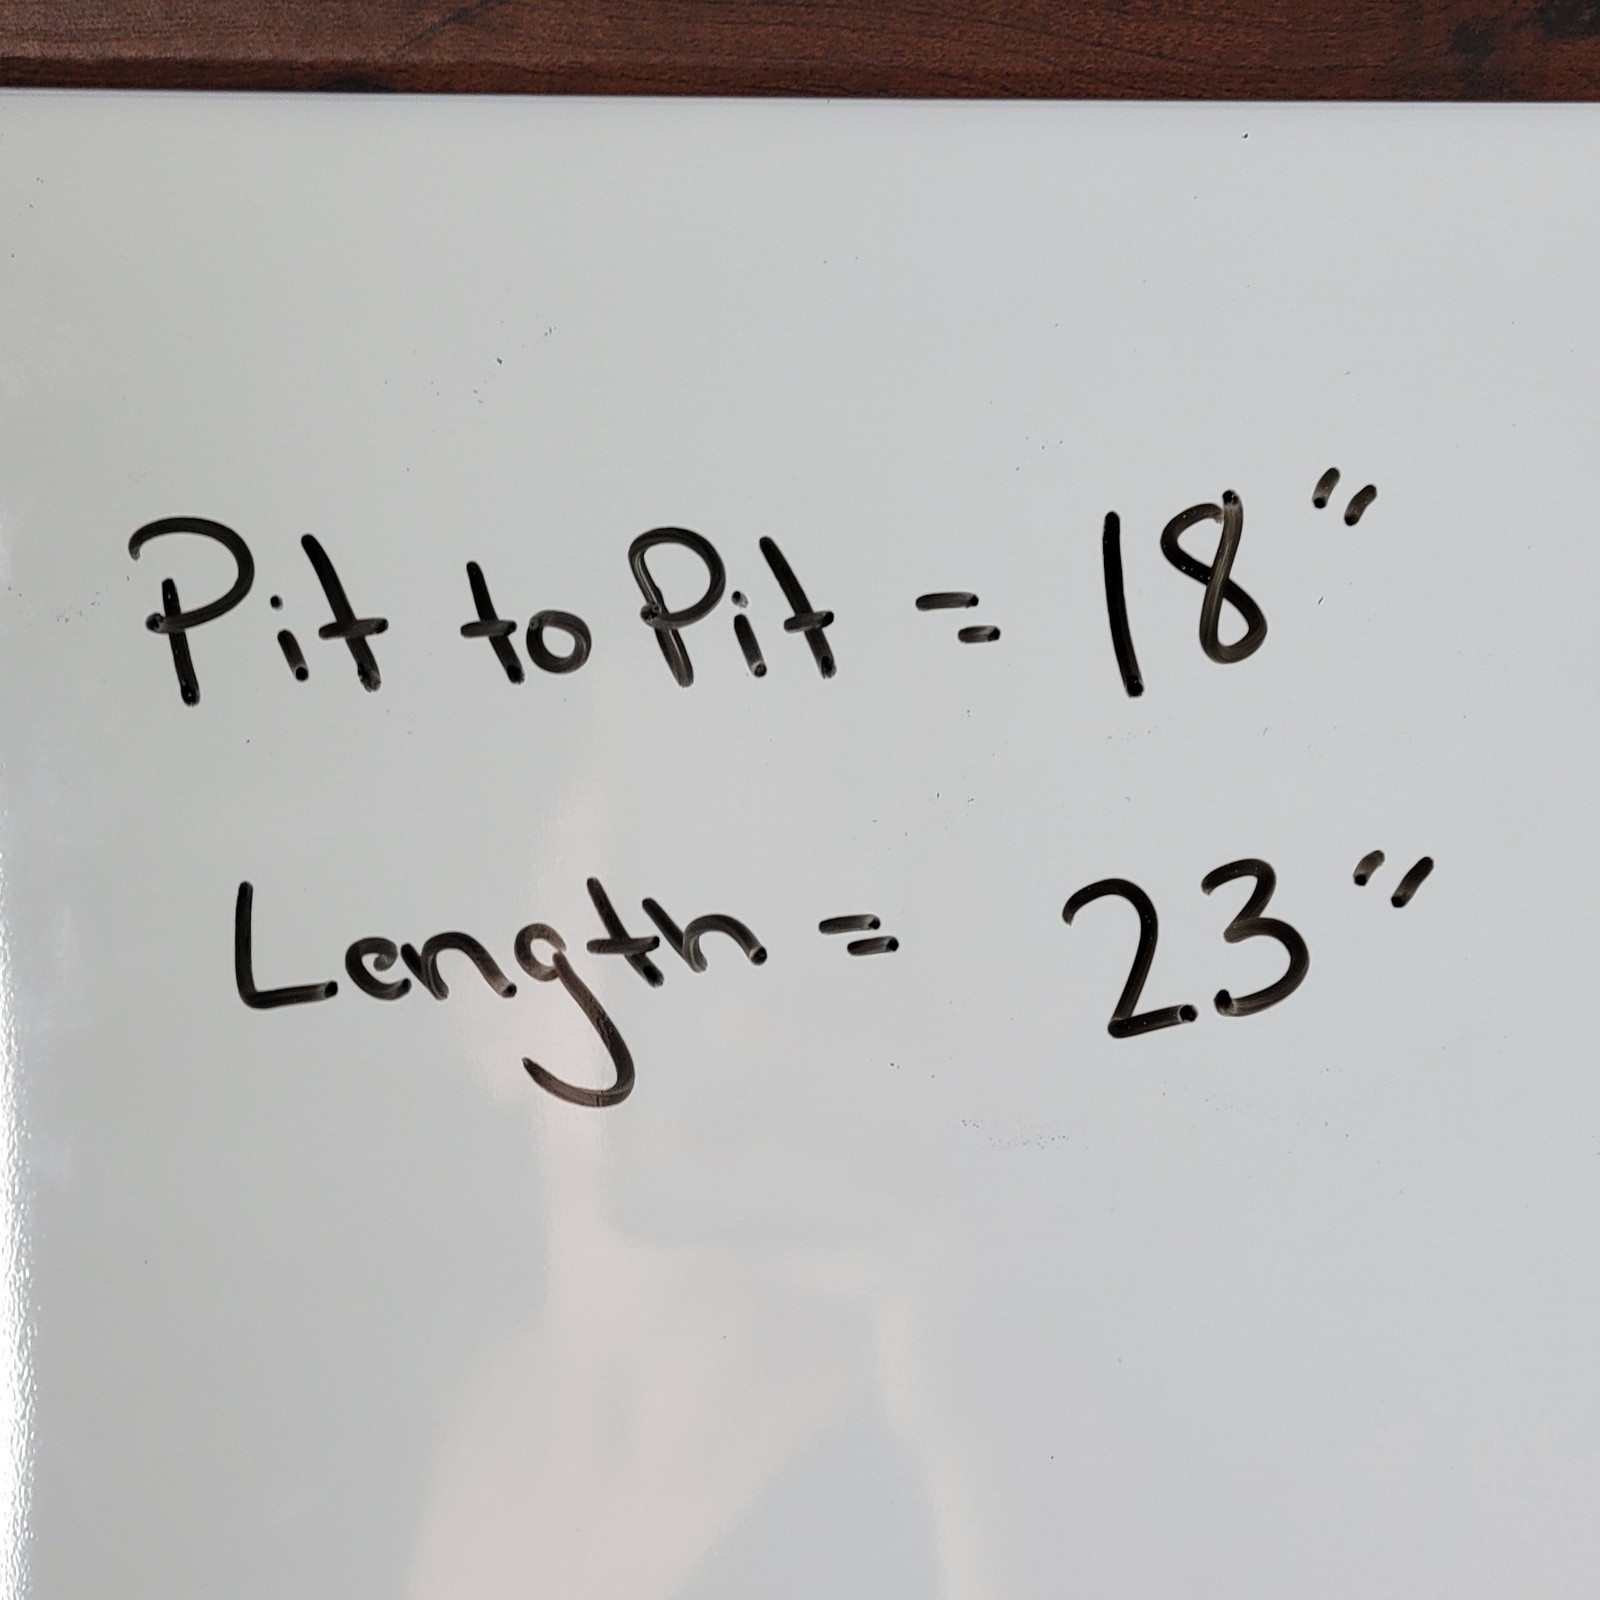 Pit to Pit = 18"
Length = 23"